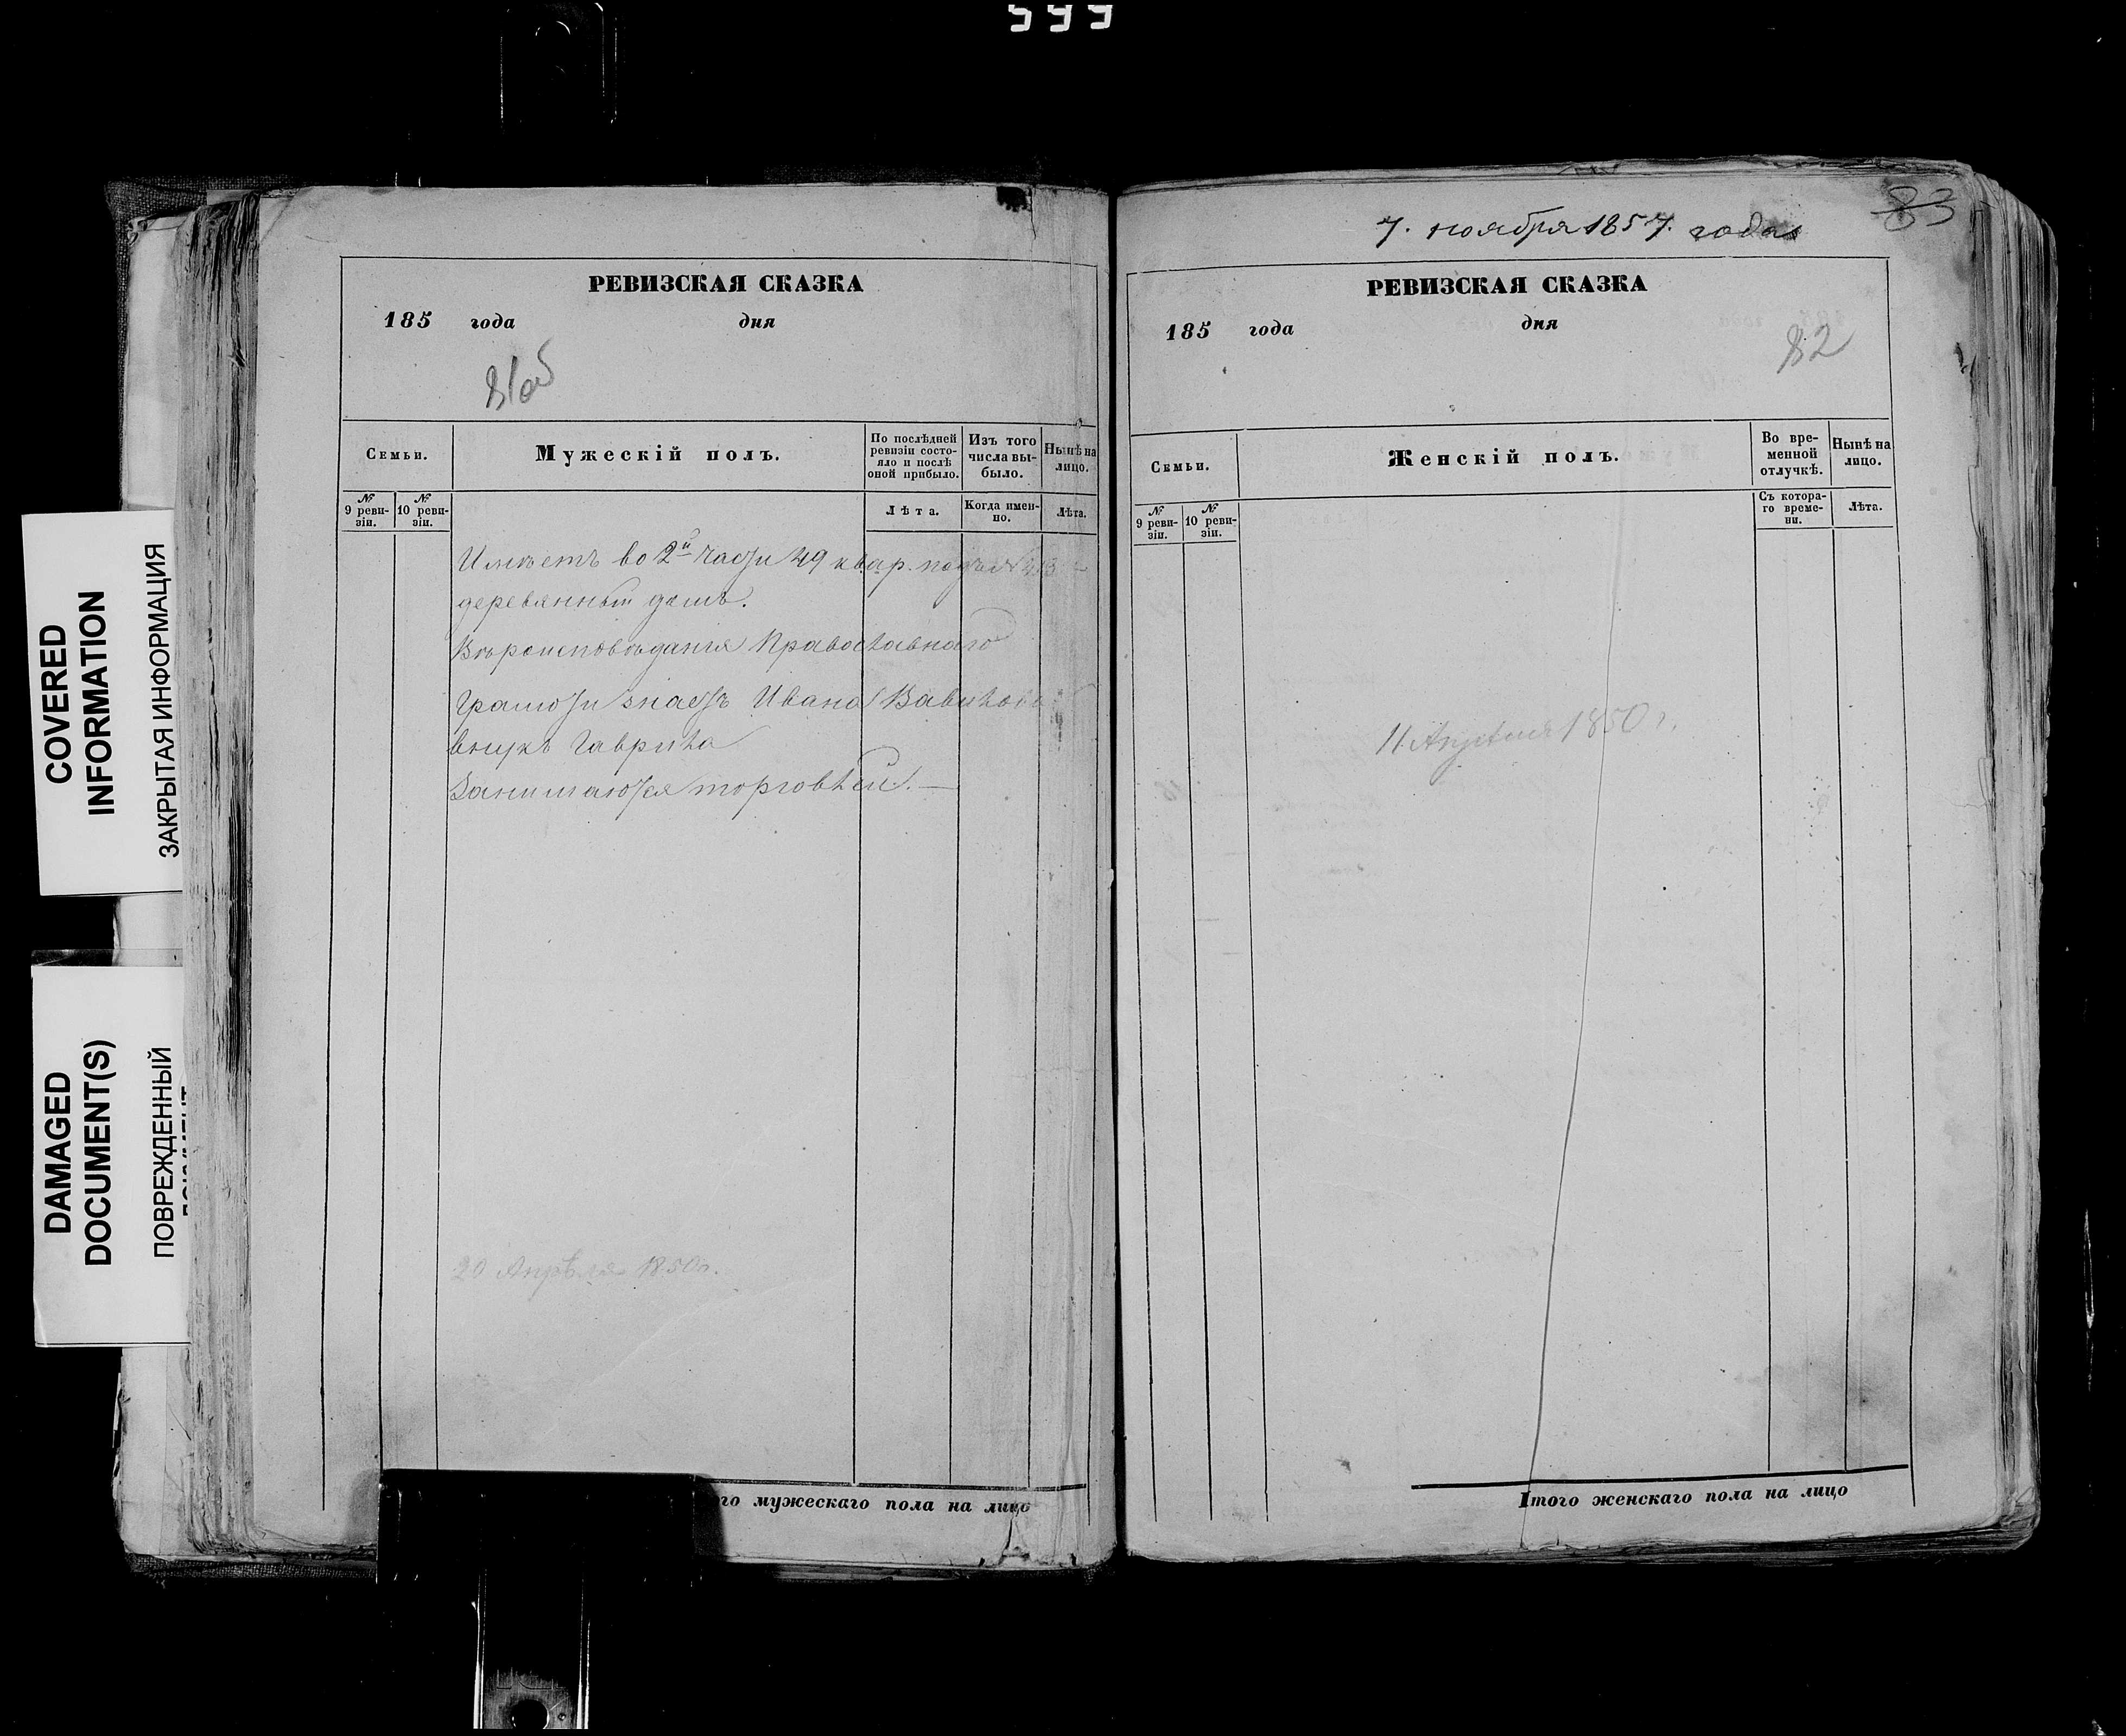 599
COVERED
INFORMATION
ЗАКРЫТАЯ ИНФОРМАЦИЯ
DAMAGED
DOCUMENT(S)
ПОВРЕЖДЕННЫЙ
РЕВИЗСКАЯ СКАЗКА
185 года дня
81об
Семьи.
Мужескій полъ.
По послѣдней ревизіи состояло и послѣ оной прибыло.
Изъ того числа выбыло.
Нынѣ на лицо.
№ 9 ревизіи.
№ 10 ревизіи.
Лѣта.
Когда именно.
Лѣта.
Имѣетъ во 2й части 49 квар. подъ №
деревянный домъ.
Вѣроисповѣданія Православнаго
Грамоти знаетъ Ивана Вавилова
внукъ Гаврила
Занимаются торговлей. —
20 Апрѣля 1850г.
го мужескаго пола на лицо
7. ноября 1857. года
83
РЕВИЗСКАЯ СКАЗКА
185 года дня
82
Семьи.
Женскій полъ.
Во временной отлучкѣ.
Нынѣ на лицо.
№ 9 ревизіи.
№ 10 ревизіи.
Съ котораго времени.
Лѣта.
11 Апреля 1850 г.
Итого женскаго пола на лицо